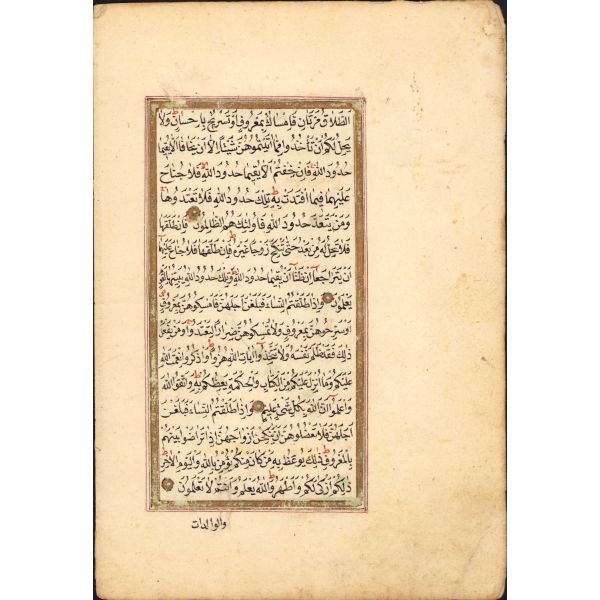 الطلاق مرتان فامساك بمعروف او تسريح باحسان ولا
يحل لكم ان تأخذوا مما آتيتموهن شيئا الا ان يخافا الا يقيما
حدود الله فان خفتم الا يقيما حدود الله فلا جناح
عليهما فيما افتدت به تلك حدود الله فلا تعتدوها
ومن يتعد حدود الله فاولئك هم الظالمون فان طلقها
فلا تحل له من بعد حتى تنكح زوجا غيره فان طلقها فلا جناح عليهما
ان يتراجعا ان ظنا ان يقيما حدود الله وتلك حدود الله يبينها لقوم
يعلمون واذا طلقتم النساء فبلغن اجلهن فامسكوهن بمعروف
او سرحوهن بمعروف ولا تمسكوهن ضرارا لتعتدوا ومن يفعل
ذلك فقد ظلم نفسه ولا تتخذوا آيات الله هزوا واذكروا نعمت الله
عليكم وما انزل عليكم من الكتاب والحكمة يعظكم به واتقوا الله
واعلموا ان الله بكل شيء عليم واذا طلقتم النساء فبلغن
اجلهن فلا تعضلوهن ان ينكحن ازواجهن اذا تراضوا بينهم
بالمعروف ذلك يوعظ به من كان منكم يؤمن بالله واليوم الآخر
ذلكم ازكى لكم واطهر والله يعلم وانتم لا تعلمون
والوالدات